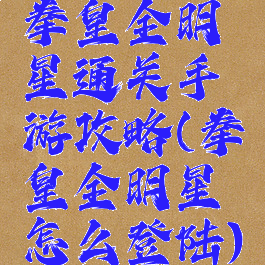 拳皇全明
星通关手
游攻略(拳
皇全明星
怎么登陆)